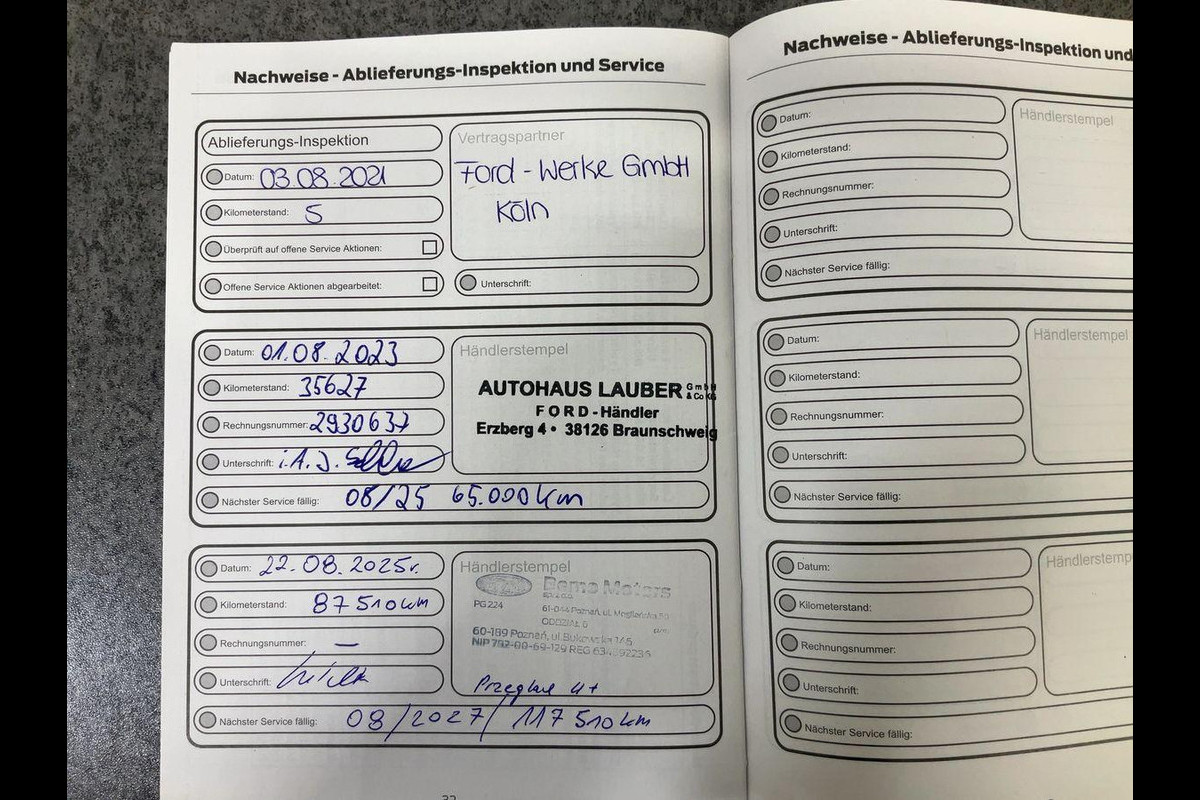 Nachweise - Ablieferungs-Inspektion und Service
Ablieferungs-Inspektion
Datum: 03.08.2021
Kilometerstand: 5
Überprüft auf offene Service Aktionen:
Offene Service Aktionen abgearbeitet:
Vertragspartner
Ford - Werke GmbH
Köln
Unterschrift:
Datum: 01.08.2023
Kilometerstand: 35627
Rechnungsnummer: 2930637
Unterschrift: i.A. J.
Nächster Service fällig: 08/25 65.000 km
Händlerstempel
AUTOHAUS LAUBER GmbH & Co KG
FORD - Händler
Erzberg 4 • 38126 Braunschweig
Datum: 22.08.2025r.
Kilometerstand: 87510 km
Rechnungsnummer: —
Unterschrift:
Nächster Service fällig: 08/2027/ 117 510 km
Händlerstempel
Bemo Motors
PG 224
61-044 Poznań, ul.
ODDZIAŁ
60-189 Poznań, ul. Bukowska 145
NIP 782-00-69-129 REG
Nachweise - Ablieferungs-Inspektion und
Datum:
Kilometerstand:
Rechnungsnummer:
Unterschrift:
Nächster Service fällig:
Händlerstempel
Datum:
Kilometerstand:
Rechnungsnummer:
Unterschrift:
Nächster Service fällig:
Händlerstempel
Datum:
Kilometerstand:
Rechnungsnummer:
Unterschrift:
Nächster Service fällig:
Händlerstemp